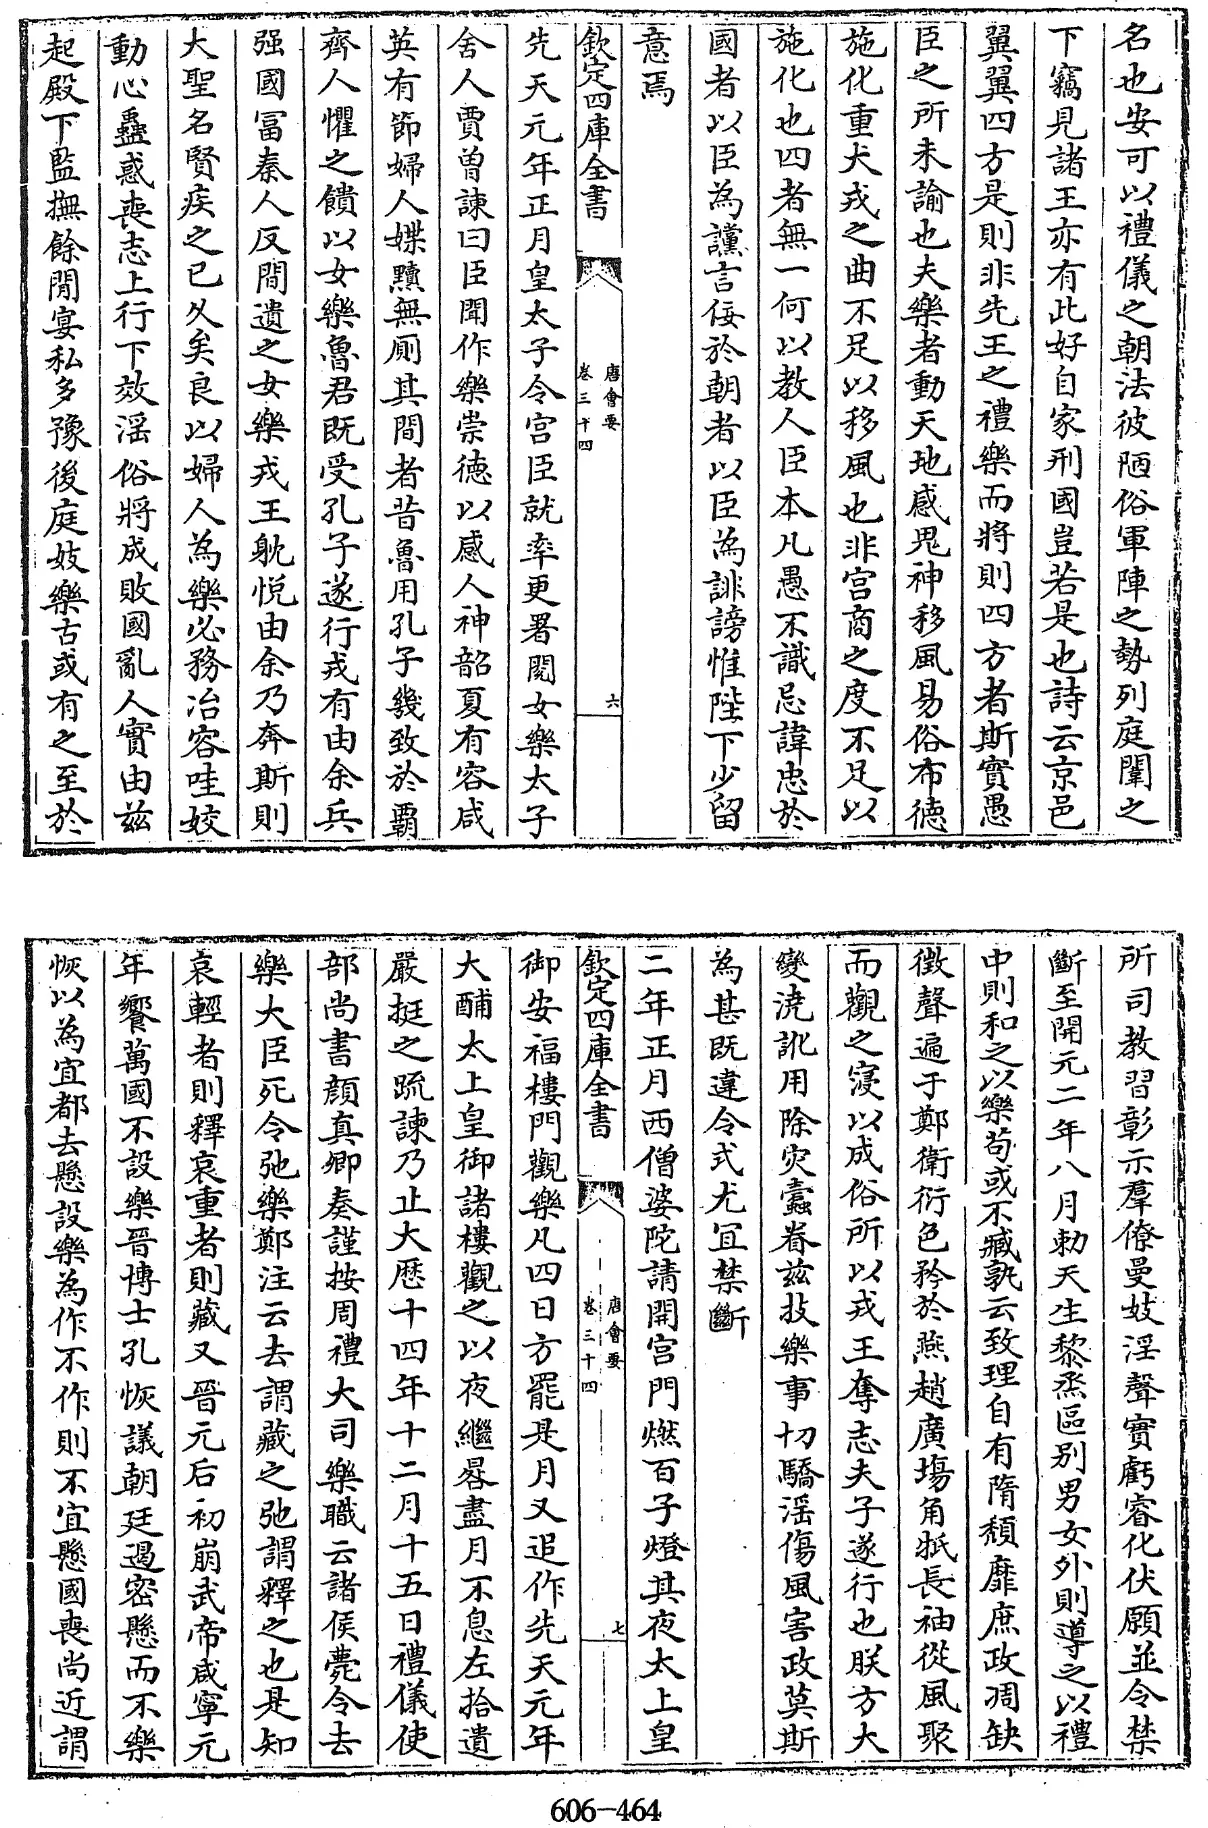 名也安可以禮儀之朝法彼陋俗軍陣之勢列庭闈之
下竊見諸王亦有此好自家刑國豈若是也詩云京邑
翼翼四方是則非先王之禮樂而將則四方者斯實愚
臣之所未諭也夫樂者動天地感鬼神移風易俗布德
施化重犬戎之曲不足以移風也非宫商之度不足以
施化也四者無一何以教人臣本凡愚不識忌諱忠於
國者以臣為讜言佞於朝者以臣為誹謗惟陛下少留
意焉
欽定四庫全書
唐會要
卷三十四
六
先天元年正月皇太子令宫臣就率更署閱女樂太子
舍人賈曾諫曰臣聞作樂崇德以感人神韶夏有容咸
英有節婦人媟黷無廁其間者昔魯用孔子幾致於霸
齊人懼之饋以女樂魯君既受孔子遂行戎有由余兵
强國富秦人反間遺之女樂戎王躭悦由余乃奔斯則
大聖名賢疾之已久矣良以婦人為樂必務冶容哇姣
動心蠱惑喪志上行下效淫俗將成敗國亂人實由兹
起殿下監撫餘閒宴私多豫後庭妓樂古或有之至於
所司教習彰示羣僚曼妓淫聲實虧睿化伏願並令禁
斷至開元二年八月勅天生黎烝區别男女外則導之以禮
中則和之以樂苟或不臧孰云致理自有隋頽靡庶政凋缺
徴聲遍于鄭衛衒色矜於燕趙廣塲角觝長袖從風聚
而觀之寖以成俗所以戎王奪志夫子遂行也朕方大
變澆訛用除災蠧眷兹技樂事切驕淫傷風害政莫斯
為甚既違令式尤宜禁斷
二年正月西僧婆陀請開宫門燃百子燈其夜太上皇
欽定四庫全書
唐會要
卷三十四
七
御安福樓門觀樂凡四日方罷是月又追作先天元年
大酺太上皇御諸樓觀之以夜繼晷盡月不息左拾遺
嚴挺之疏諫乃止大厯十四年十二月十五日禮儀使
部尚書顔真卿奏謹按周禮大司樂職云諸侯薨令去
樂大臣死令弛樂鄭注云去謂藏之弛謂釋之也是知
哀輕者則釋哀重者則藏又晉元后初崩武帝咸寧元
年饗萬國不設樂晉博士孔恢議朝廷遏密懸而不樂
恢以為宜都去懸設樂為作不作則不宜懸國喪尚近謂
606-464